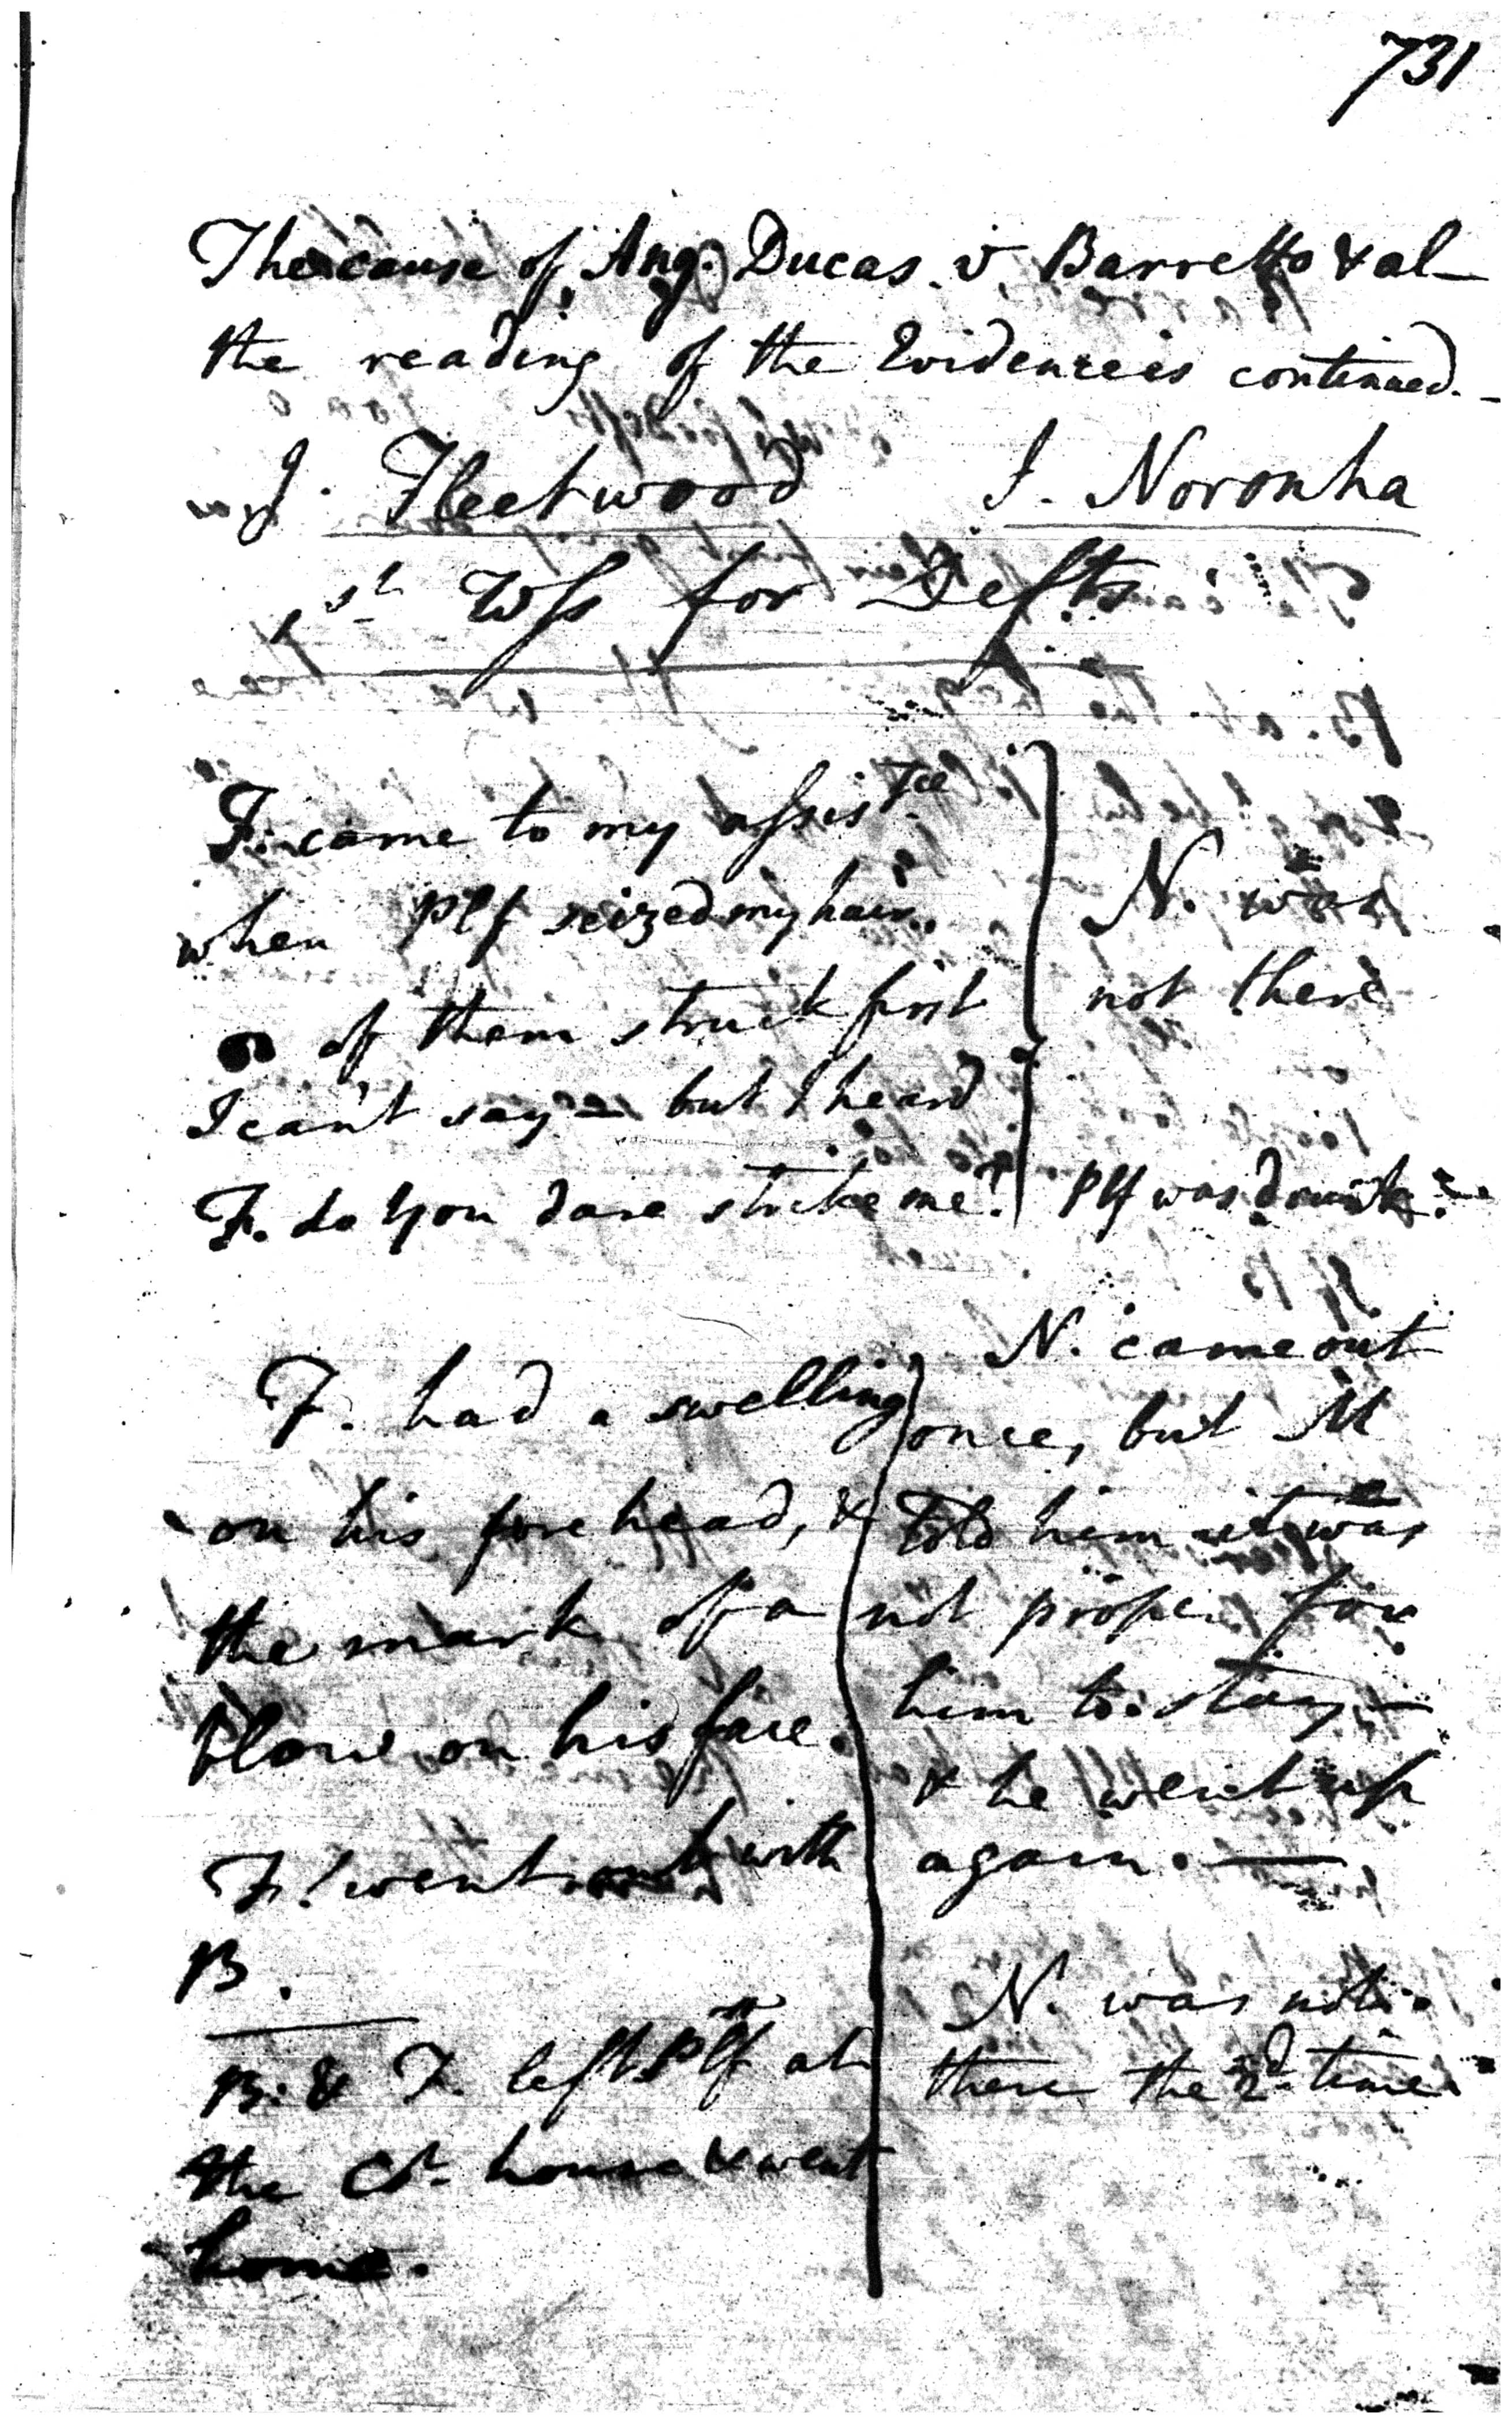 731
The cause of Ang. Ducas v Barretto & al
the reading of the Evidence is continued.
J. Fleetwood
J. Noronha
1st Wss for Defts
F. came to my assistce
when Plf seized my hair.
of them struck first
I can't say – but I heard
F. do you dare strike me?
N. was
not there
Plf was drunk.
F. had a swelling
on his forehead, &
the mark of a
blow on his face.
F. went out with
B.
B. & F. left Plf at
the Ct. house & went
home.
N. came out
once, but M
told him it was
not proper for
him to stay –
& he went up
again. —
N. was not
there the 2d. time.